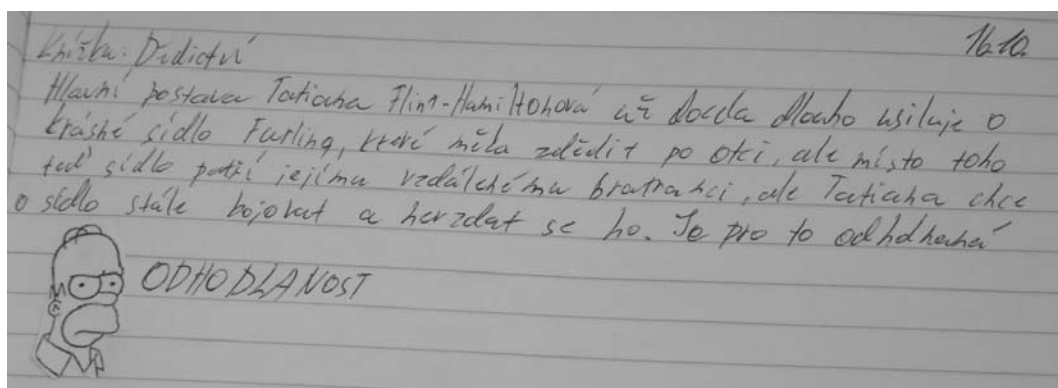 16.10.
Knížka: Dědictví
Hlavní postava Tatiana Flint-Hamiltonová už docela dlouho usiluje o
krásné sídlo Furling, které měla zdědit po otci, ale místo toho
teď sídlo patří jejímu vzdálenému bratranci, ale Tatiana chce
o sídlo stále bojovat a nevzdat se ho. Je pro to
ODHODLANOST